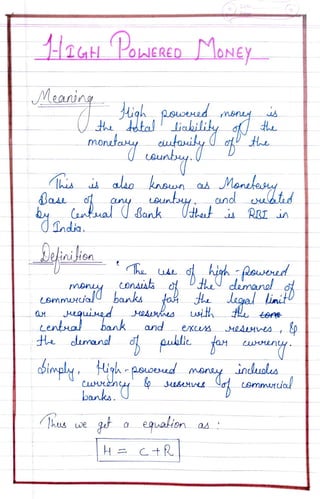 HIGH POWERED MONEY
Meaning
High powered money is
the total liability of the
monetary autority of the
country.
This is also known as Monetary
Base of any country. and created
by Central Bank that is RBI in
India.
Definition :
"The use of high-powered
money consists of the demand of
commercial banks for the legal limit
or required reserves with the
central bank and excess reserves, &
the demand of public for currency.
Simply, High-powered money includes
currency & reserves of commercial
banks.
Thus we get a equation as :
H = C+R